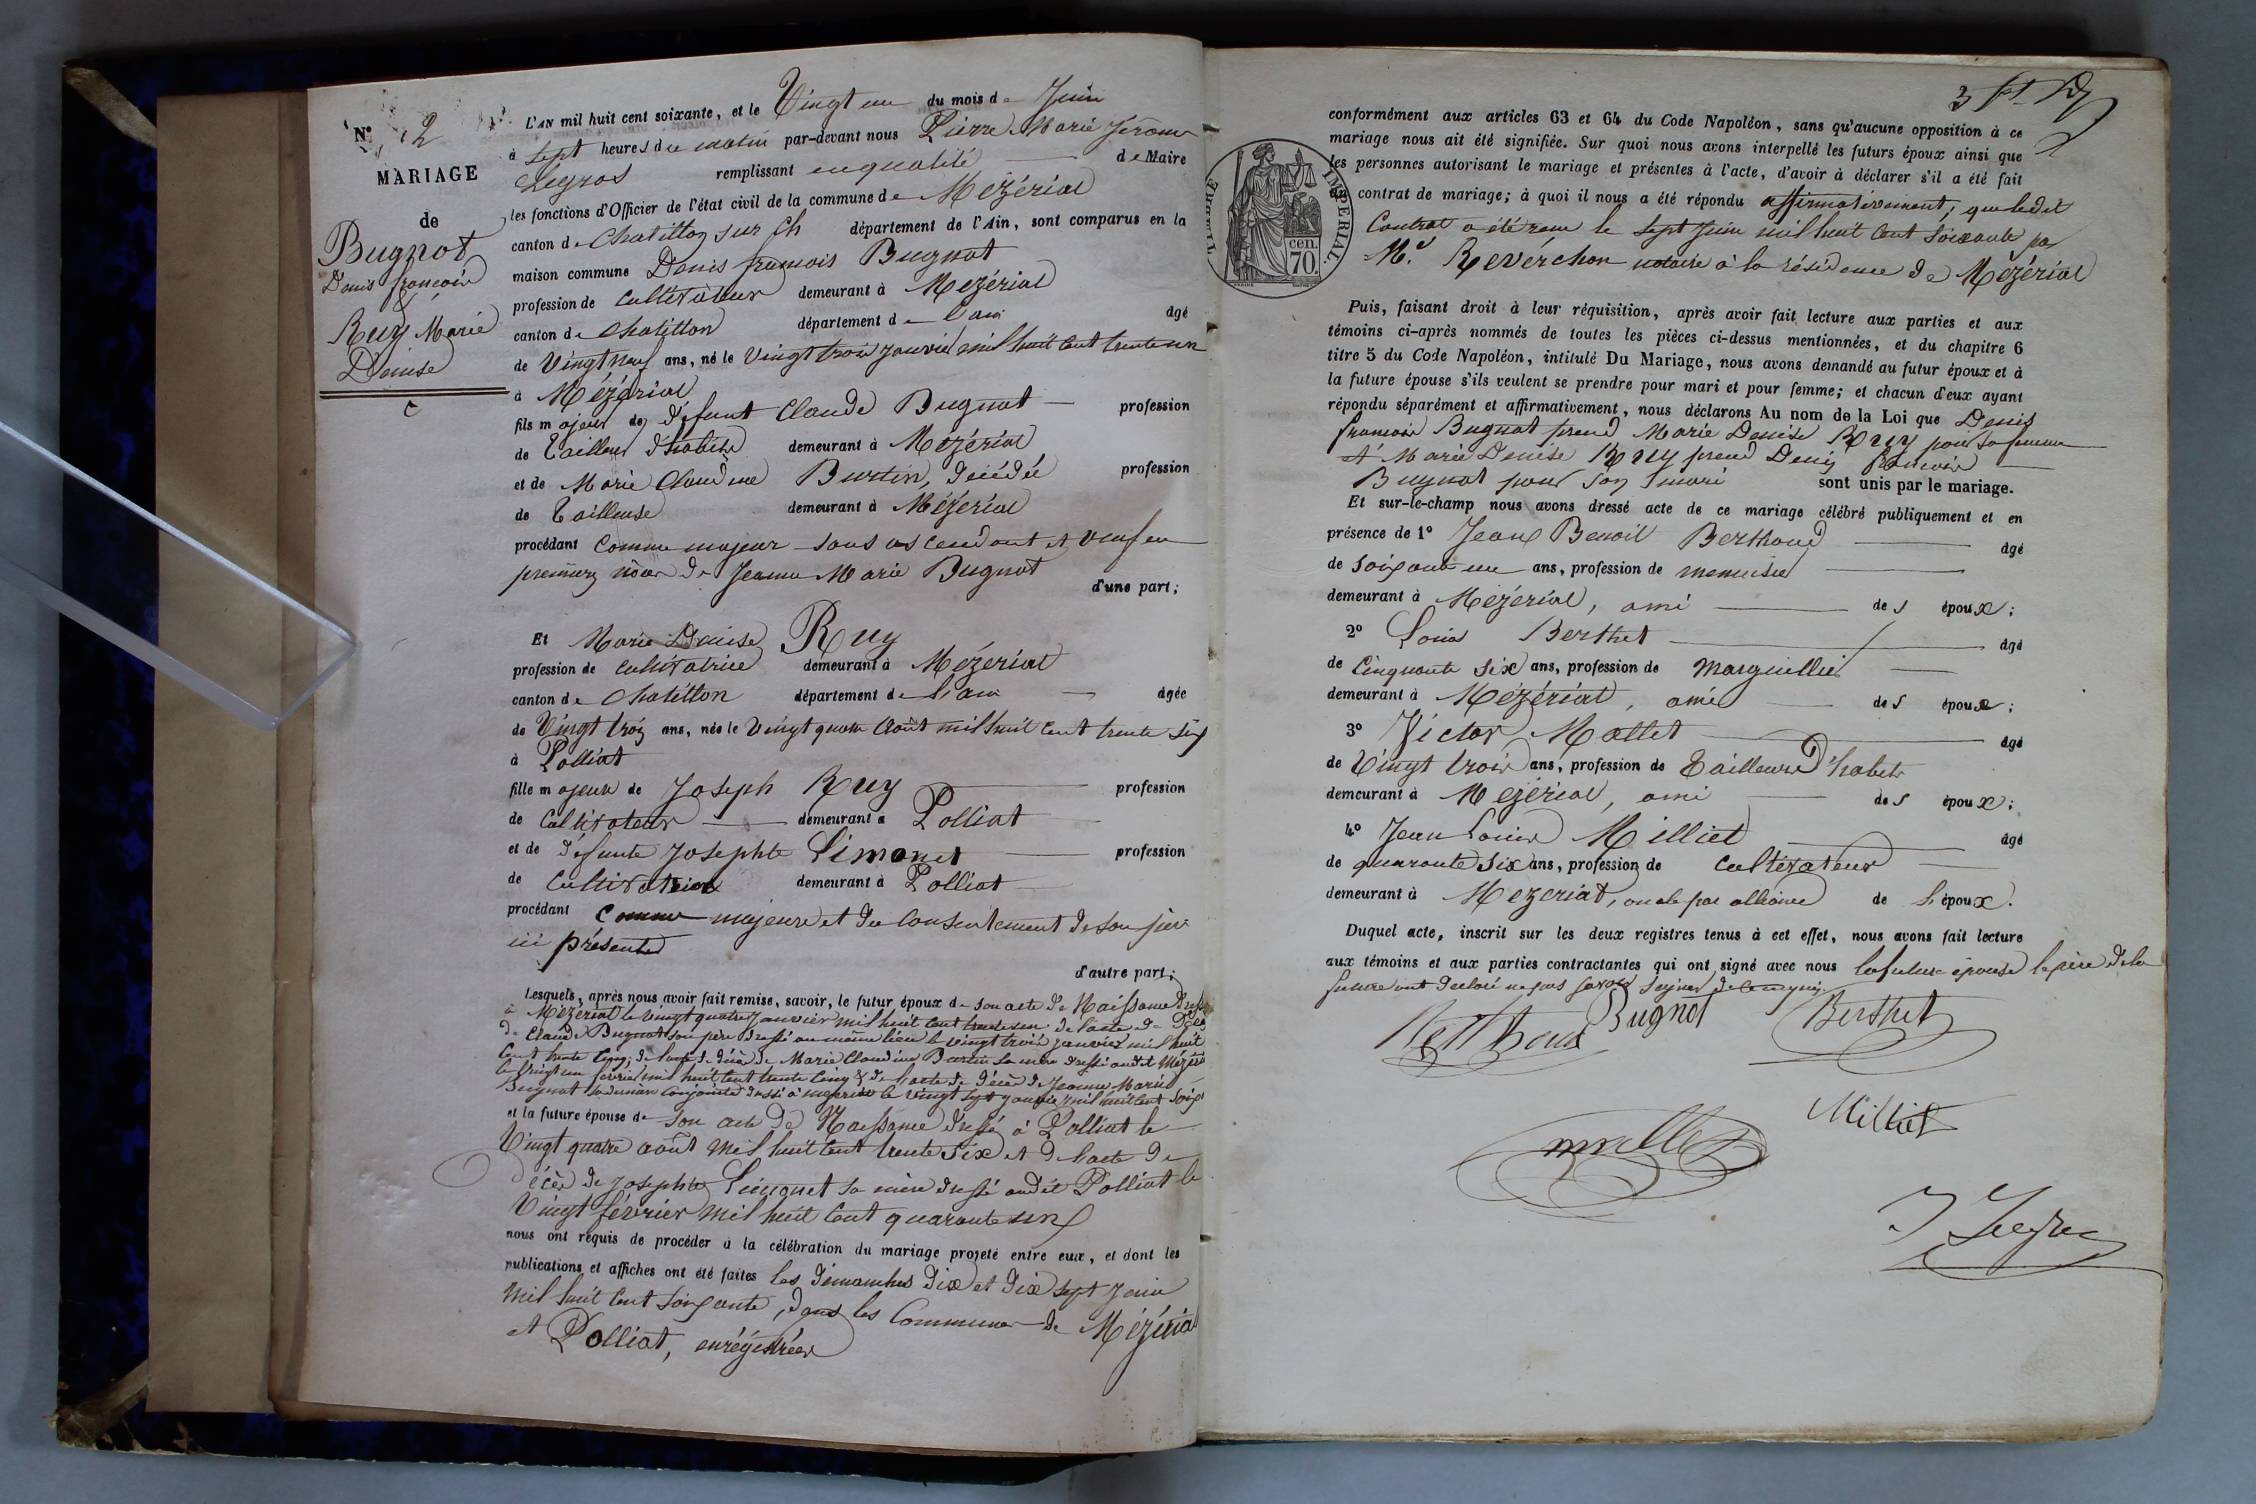 N° 2
MARIAGE
de
Bugnot
Denis françois
&
Ruy Marie
Denise
L'AN mil huit cent soixante, et le Vingt un du mois de Juin
à Sept heures du matin par-devant nous Pierre Marie Jérome
Legros remplissant en qualité de Maire
les fonctions d'Officier de l'état civil de la commune de Mézériat
canton de Chatillon sur Ch département de l'Ain, sont comparus en la
maison commune Denis françois Bugnot
profession de cultivateur demeurant à Mézériat
canton de Chatillon département de l'ain âgé
de Vingt neuf ans, né le Vingt trois janvier mil huit cent trente un
à Mézériat
fils majeur de défunt Claude Bugnot profession
de Tailleur d'habits demeurant à Mézériat
et de Marie Claudine Burtin, décédée profession
de Tailleuse demeurant à Mézériat
procédant comme majeur sans ascendant et veuf en
premières noces de Jeanne Marie Bugnot
d'une part;
Et Marie Denise Ruy
profession de cultivatrice demeurant à Mézériat
canton de Chatillon département de l'ain âgée
de Vingt trois ans, née le Vingt quatre Août mil huit cent trente six
à Polliat
fille majeure de Joseph Ruy profession
de Cultivateur demeurant à Polliat
et de défunte Josephte Limonet profession
de Cultivatrice demeurant à Polliat
procédant Comme majeure et du consentement de son père
ici présent
d'autre part;
Lesquels, après nous avoir fait remise, savoir, le futur époux de son acte de Naissance dressé
à Mézériat le vingt quatre Janvier mil huit cent trente un de l'acte de Décès
de Claude Bugnot son père dressé au même lieu le vingt trois janvier mil huit
cent trente cinq; de l'acte de décès de Marie Claudine Burtin sa mère dressé audit Mézériat
le vingt un février mil huit cent trente cinq & de l'acte de décès de Jeanne Marie
Bugnot sa conjointe dressé à Mézériat le vingt sept mil huit cent
et la future épouse de son acte de Naissance dressé à Polliat le
Vingt quatre août mil huit cent trente six et de l'acte de
décès de Josephte Limonet sa mère dressé audit Polliat le
Vingt février mil huit cent quarante un
nous ont requis de procéder à la célébration du mariage projeté entre eux, et dont les
publications et affiches ont été faites les dimanches dix et dix sept Juin
mil huit cent soixante, dans les Communes de Mézériat
et Polliat, enrégistrées
TIMBRE IMPERIAL.
cen.
70
conformément aux articles 63 et 64 du Code Napoléon, sans qu'aucune opposition à ce
mariage nous ait été signifiée. Sur quoi nous avons interpellé les futurs époux ainsi que
les personnes autorisant le mariage et présentes à l'acte, d'avoir à déclarer s'il a été fait
un contrat de mariage; à quoi il nous a été répondu affirmativement; que ledit
Contrat a été reçu le sept Juin mil huit cent soixante par
Me Reverchon notaire à la résidence de Mézériat
Puis, faisant droit à leur réquisition, après avoir fait lecture aux parties et aux
témoins ci-après nommés de toutes les pièces ci-dessus mentionnées, et du chapitre 6
titre 5 du Code Napoléon, intitulé Du Mariage, nous avons demandé au futur époux et à
la future épouse s'ils veulent se prendre pour mari et pour femme; et chacun d'eux ayant
répondu séparément et affirmativement, nous déclarons Au nom de la Loi que Denis
francois Bugnot prend Marie Denise Ruy pour sa femme
et Marie Denise Ruy prend Denis francois
Bugnot pour son mari sont unis par le mariage.
Et sur-le-champ nous avons dressé acte de ce mariage célébré publiquement et en
présence de 1° Jean Benoit Berthoud âgé
de soixante un ans, profession de menuisier
demeurant à Mézériat, ami des époux;
2° Louis Berthet âgé
de cinquante six ans, profession de marguillier
demeurant à Mézériat, ami des époux;
3° Victor Mallet âgé
de Vingt trois ans, profession de Tailleur d'habits
demeurant à Mézériat, ami des époux;
4° Jean Louis Milliet âgé
de quarante six ans, profession de cultivateur
demeurant à Mézériat, oncle par alliance de l'époux.
Duquel acte, inscrit sur les deux registres tenus à cet effet, nous avons fait lecture
aux témoins et aux parties contractantes qui ont signé avec nous la future épouse le père de la
future ont déclaré ne pas savoir signer de ce requis
Berthoud Bugnot Berthet
Milliet
mallet
J Legros